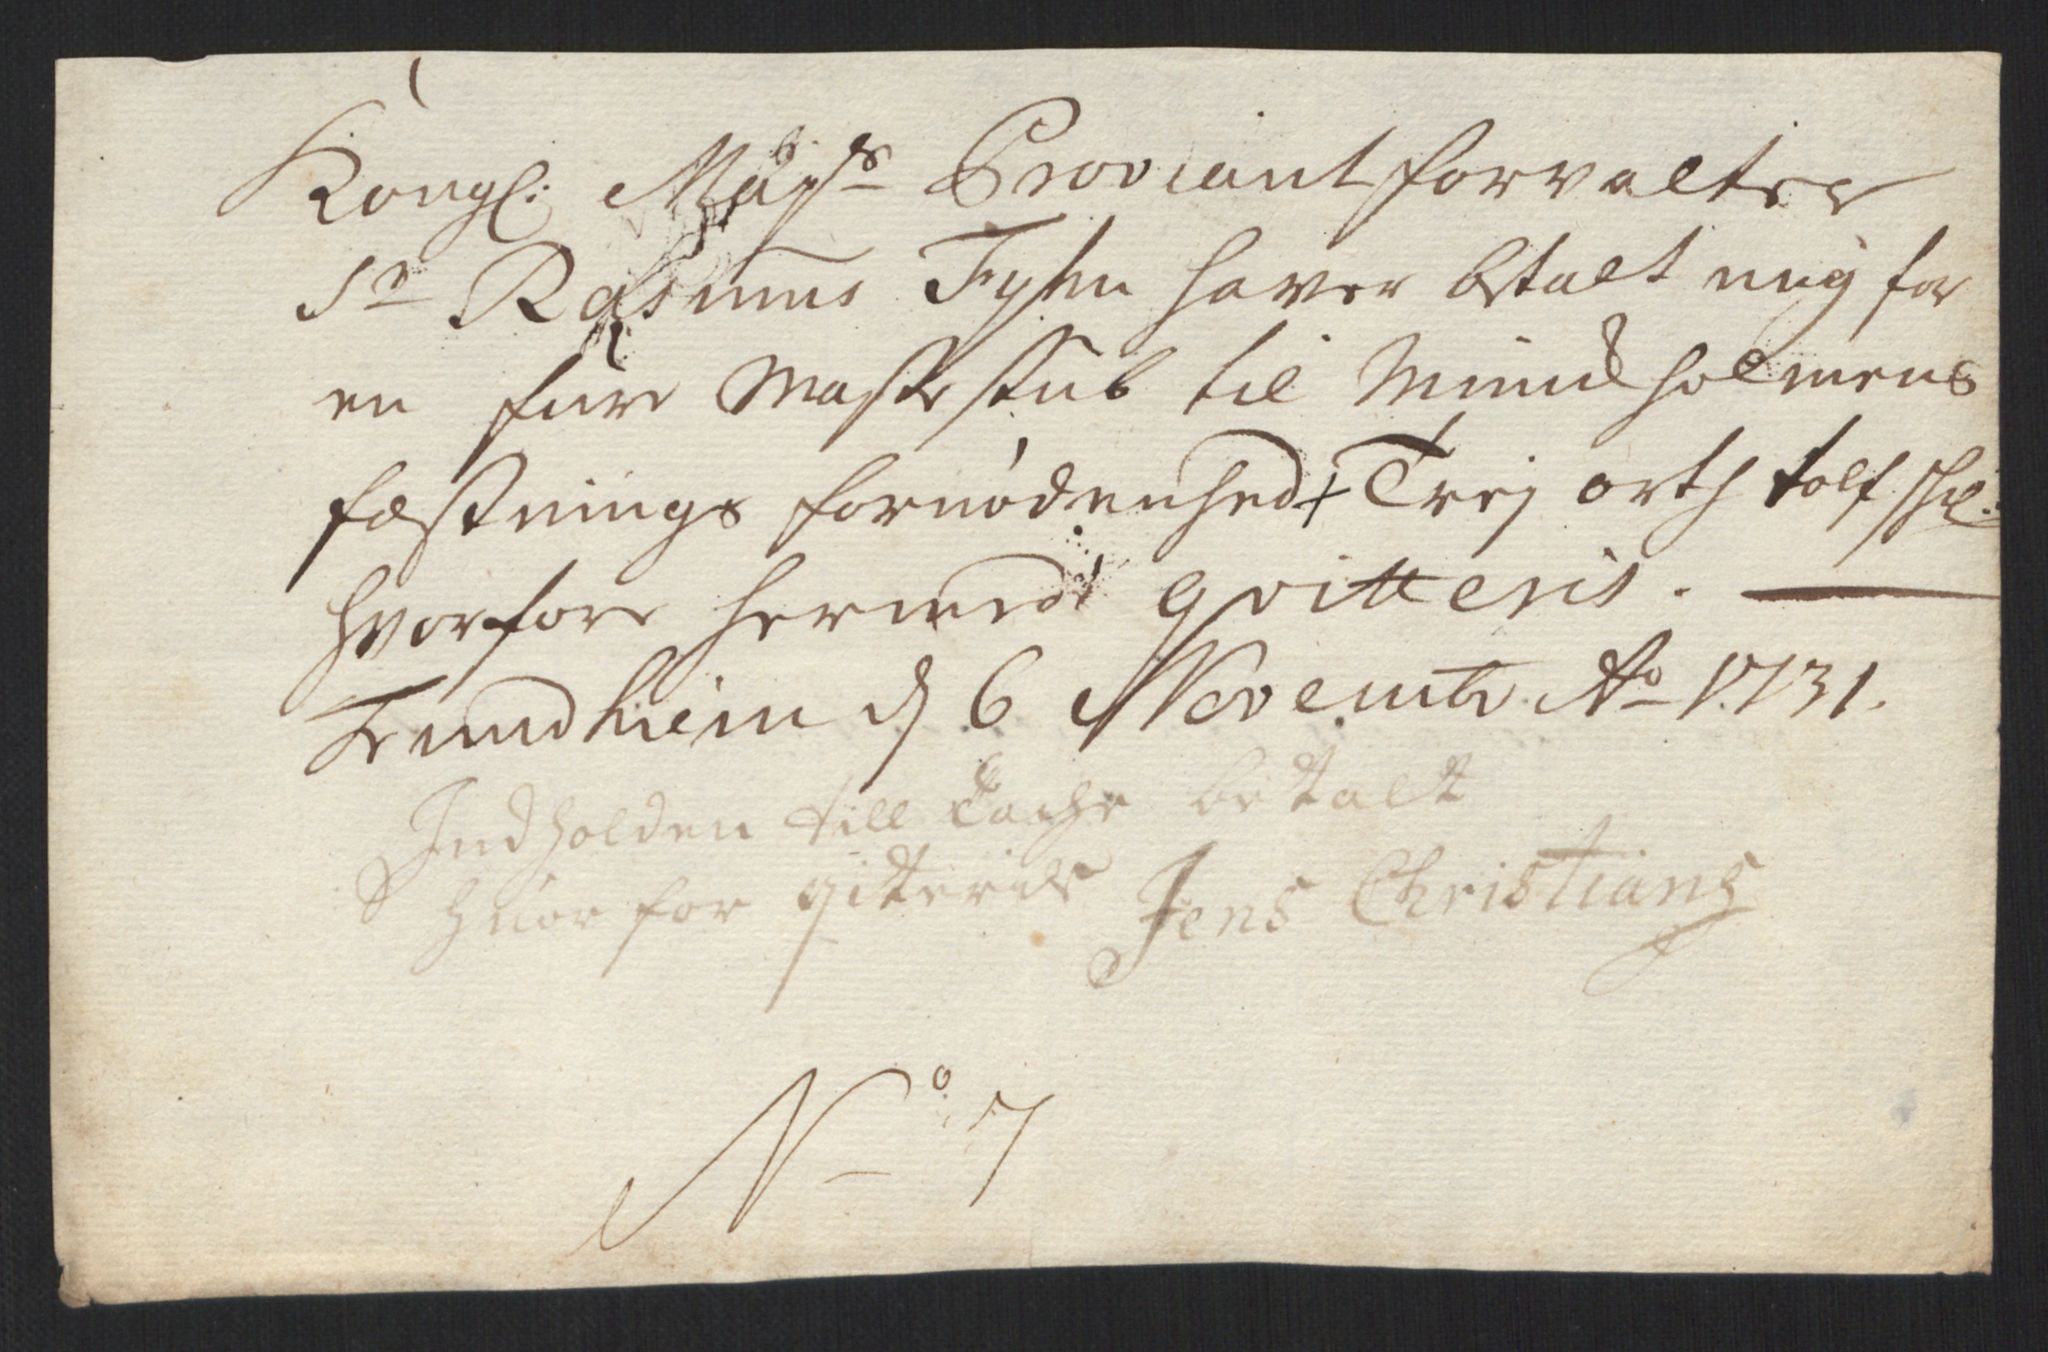 Kongl: Mayts Proviant forvalter
Sr Rasmus Fyhn haver betalt mig for
en furu Maste stub til Munkholmens
fæstnings fornødenhed + Trej orth tolf shl:
hvorfore hermed qvitteris.
Trundhiem d 6 Novembr Ao 1731.
Indholden till Tache betalt
huor for qitteris Jens Christians
No 7